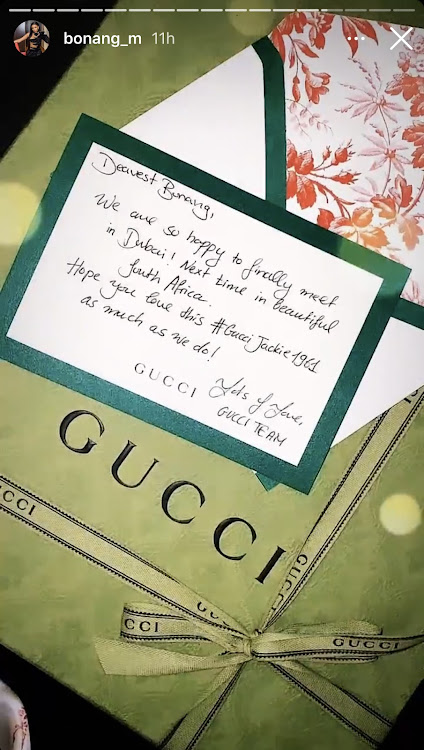 bonang_m 11h
Dearest Bonang,
We are so happy to finally meet
in Dubai! Next time in beautiful
South Africa.
Hope you love this #Gucci Jackie 1961
as much as we do!
GUCCI
Lots of Love,
GUCCI TEAM
GUCCI
CCI
GUCCI
GU
CCI
GUCCI